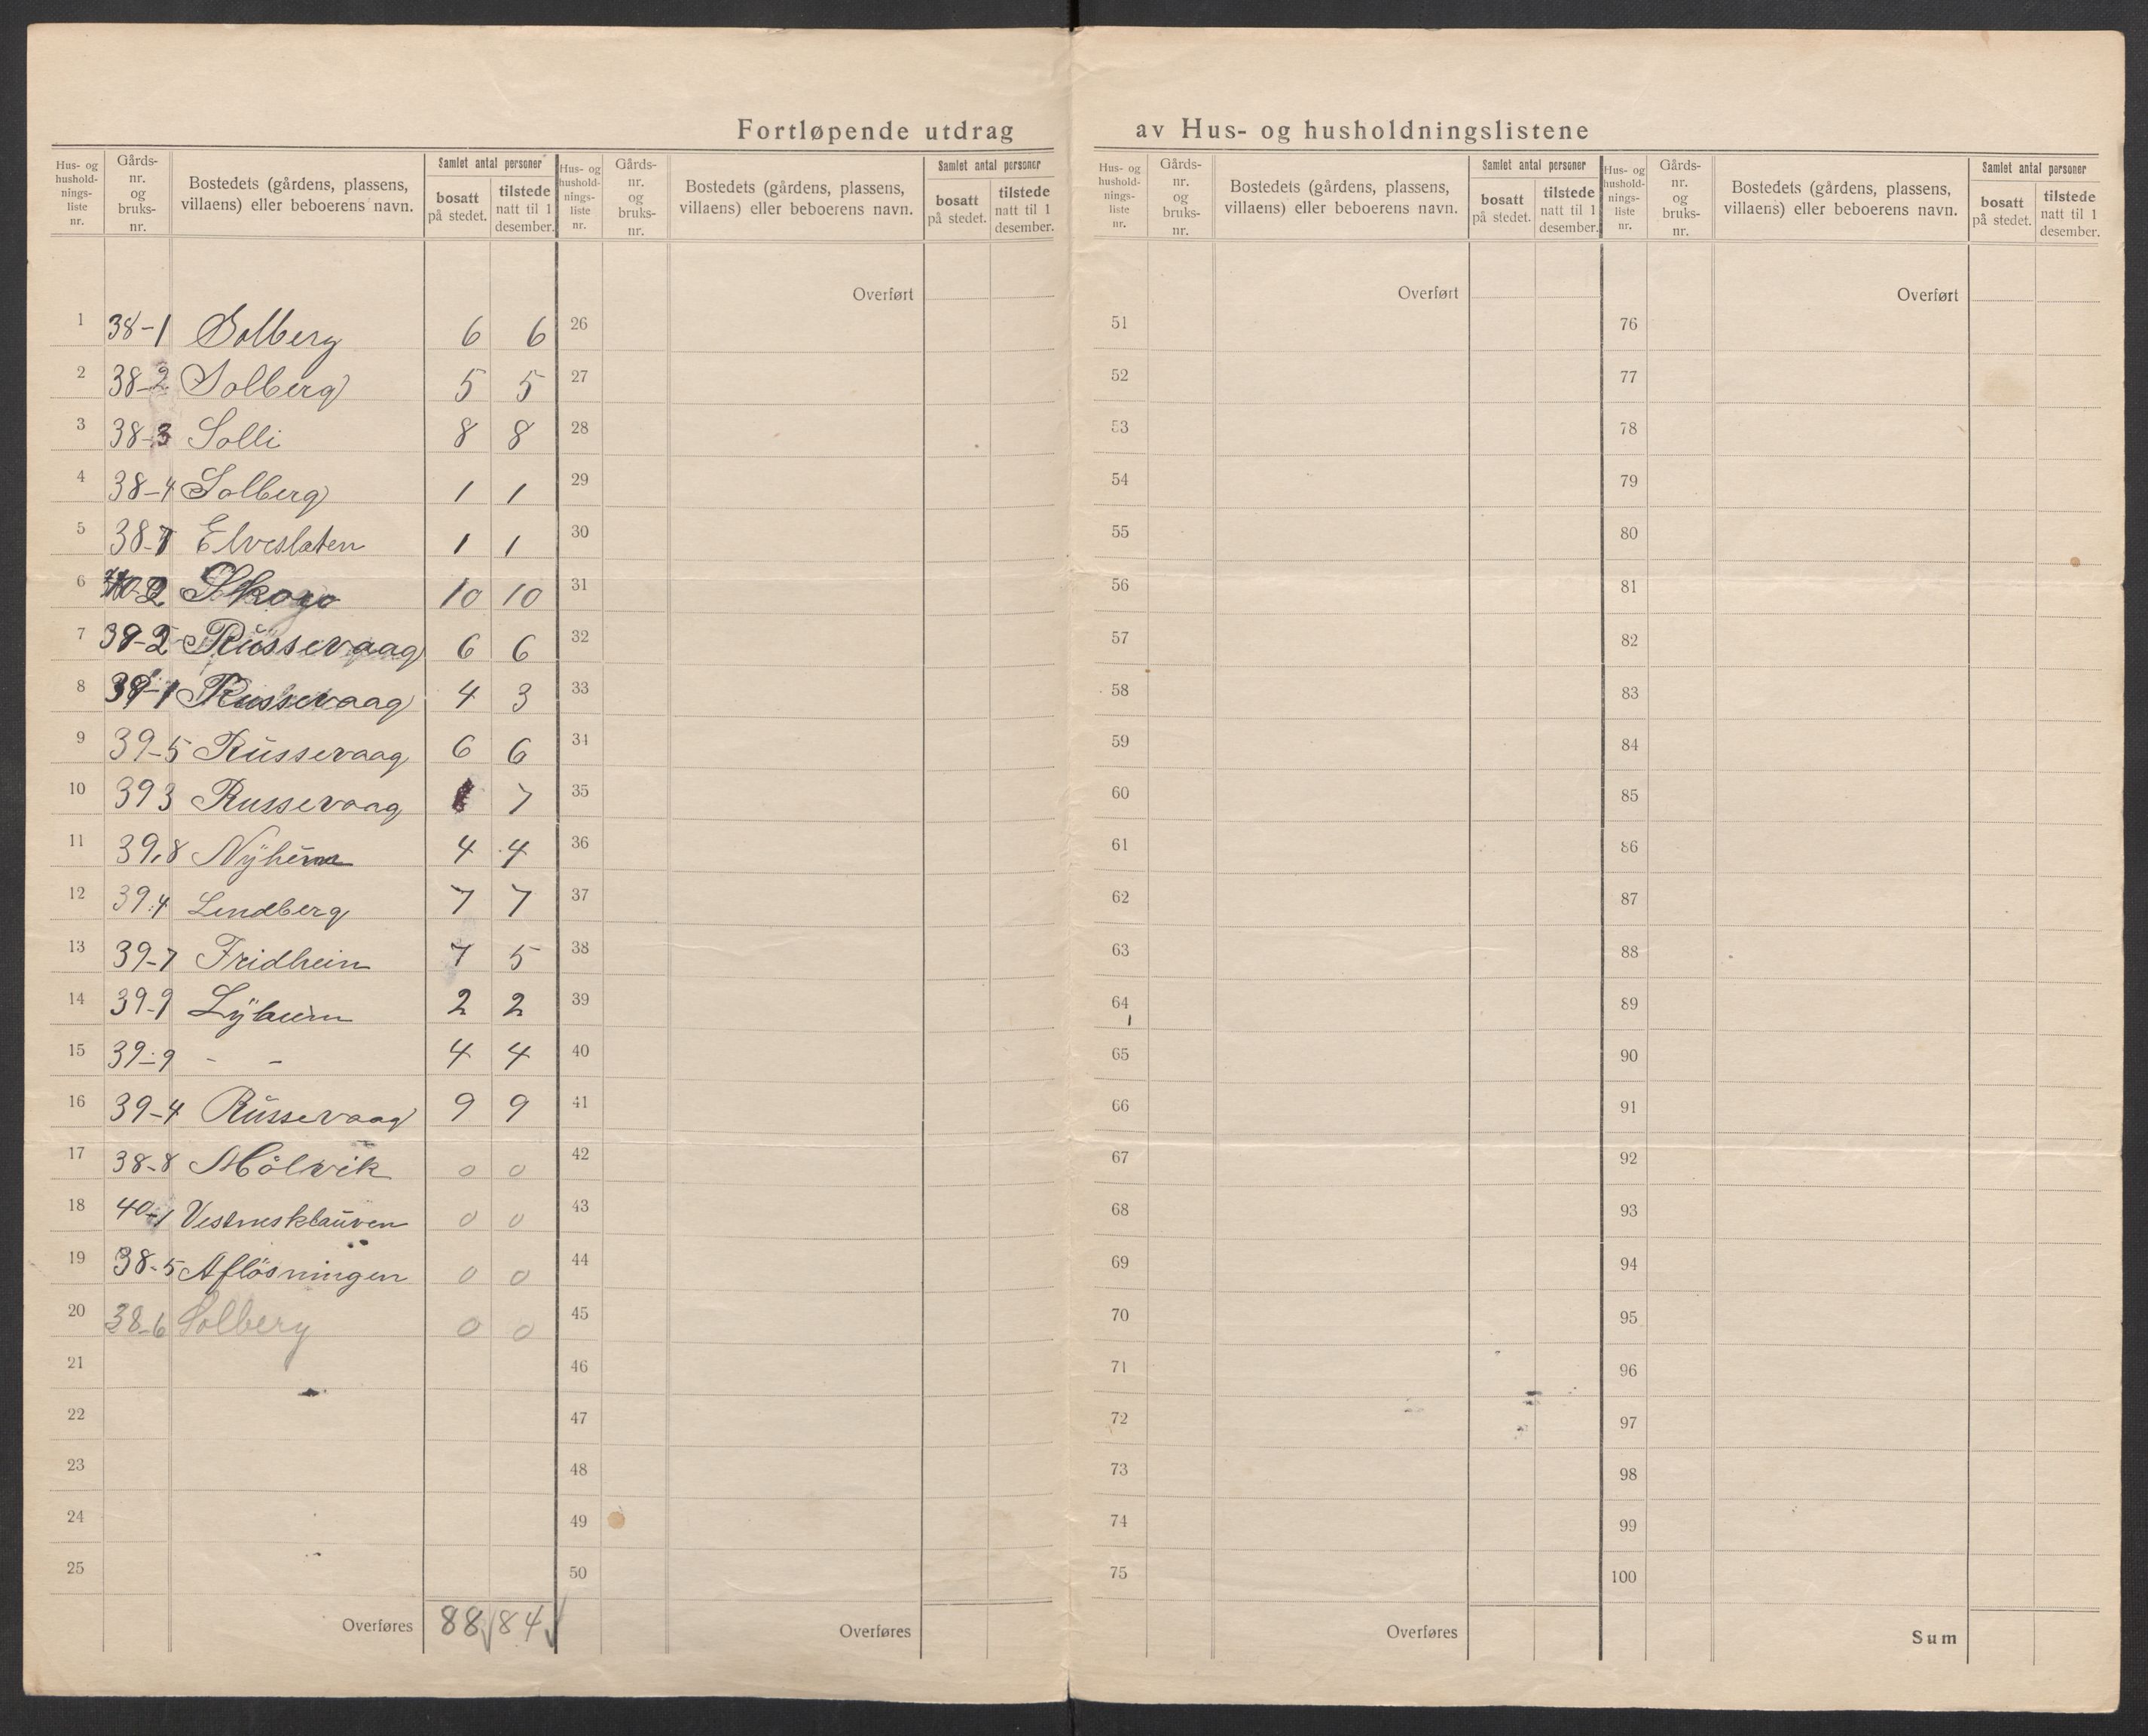 Fortløpende utdrag av Hus- og husholdningslistene
Hus- og hushold-nings-liste nr. | Gårds-nr. og bruks-nr. | Bostedets (gårdens, plassens, villaens) eller beboerens navn. | Samlet antal personer | bosatt på stedet. | tilstede natt til 1 desember.
Hus- og hushold-nings-liste nr. | Gårds-nr. og bruks-nr. | Bostedets (gårdens, plassens, villaens) eller beboerens navn. | Samlet antal personer | bosatt på stedet. | tilstede natt til 1 desember.
Hus- og hushold-nings-liste nr. | Gårds-nr. og bruks-nr. | Bostedets (gårdens, plassens, villaens) eller beboerens navn. | Samlet antal personer | bosatt på stedet. | tilstede natt til 1 desember.
Hus- og hushold-nings-liste nr. | Gårds-nr. og bruks-nr. | Bostedets (gårdens, plassens, villaens) eller beboerens navn. | Samlet antal personer | bosatt på stedet. | tilstede natt til 1 desember.
Overført Overført Overført
1 38-1 Solberg 6 6 26 51 76
2 38-2 Solberg 5 5 27 52 77
3 38-3 Solli 8 8 28 53 78
4 38-4 Solberg 1 1 29 54 79
5 38-7 Elvesletten 1 1 30 55 80
6 40-2 10 10 31 56 81
7 39-2 Russevaag 6 6 32 57 82
8 39-1 Russevaag 4 3 33 58 83
9 39-5 Russevaag 6 6 34 59 84
10 39 3 Russevaag 7 35 60 85
11 39,8 Nyheim 4 4 36 61 86
12 39.4 Lindberg 7 7 37 62 87
13 39-7 Fridheim 7 5 38 63 88
14 39-9 Lyheim 2 2 39 64 89
15 39-9 - - 4 4 40 65 90
16 39-4 Russevaag 9 9 41 66 91
17 38-8 Mölvik 0 0 42 67 92
18 40-1 Vestnesklauven 0 0 43 68 93
19 38-5 Aflösningen 0 0 44 69 94
20 38-6 Solberg 0 0 45 70 95
21 46 71 96
22 47 72 97
23 48 73 98
24 49 74 99
25 50 75 100
Overføres 88 84 Overføres Overføres Sum